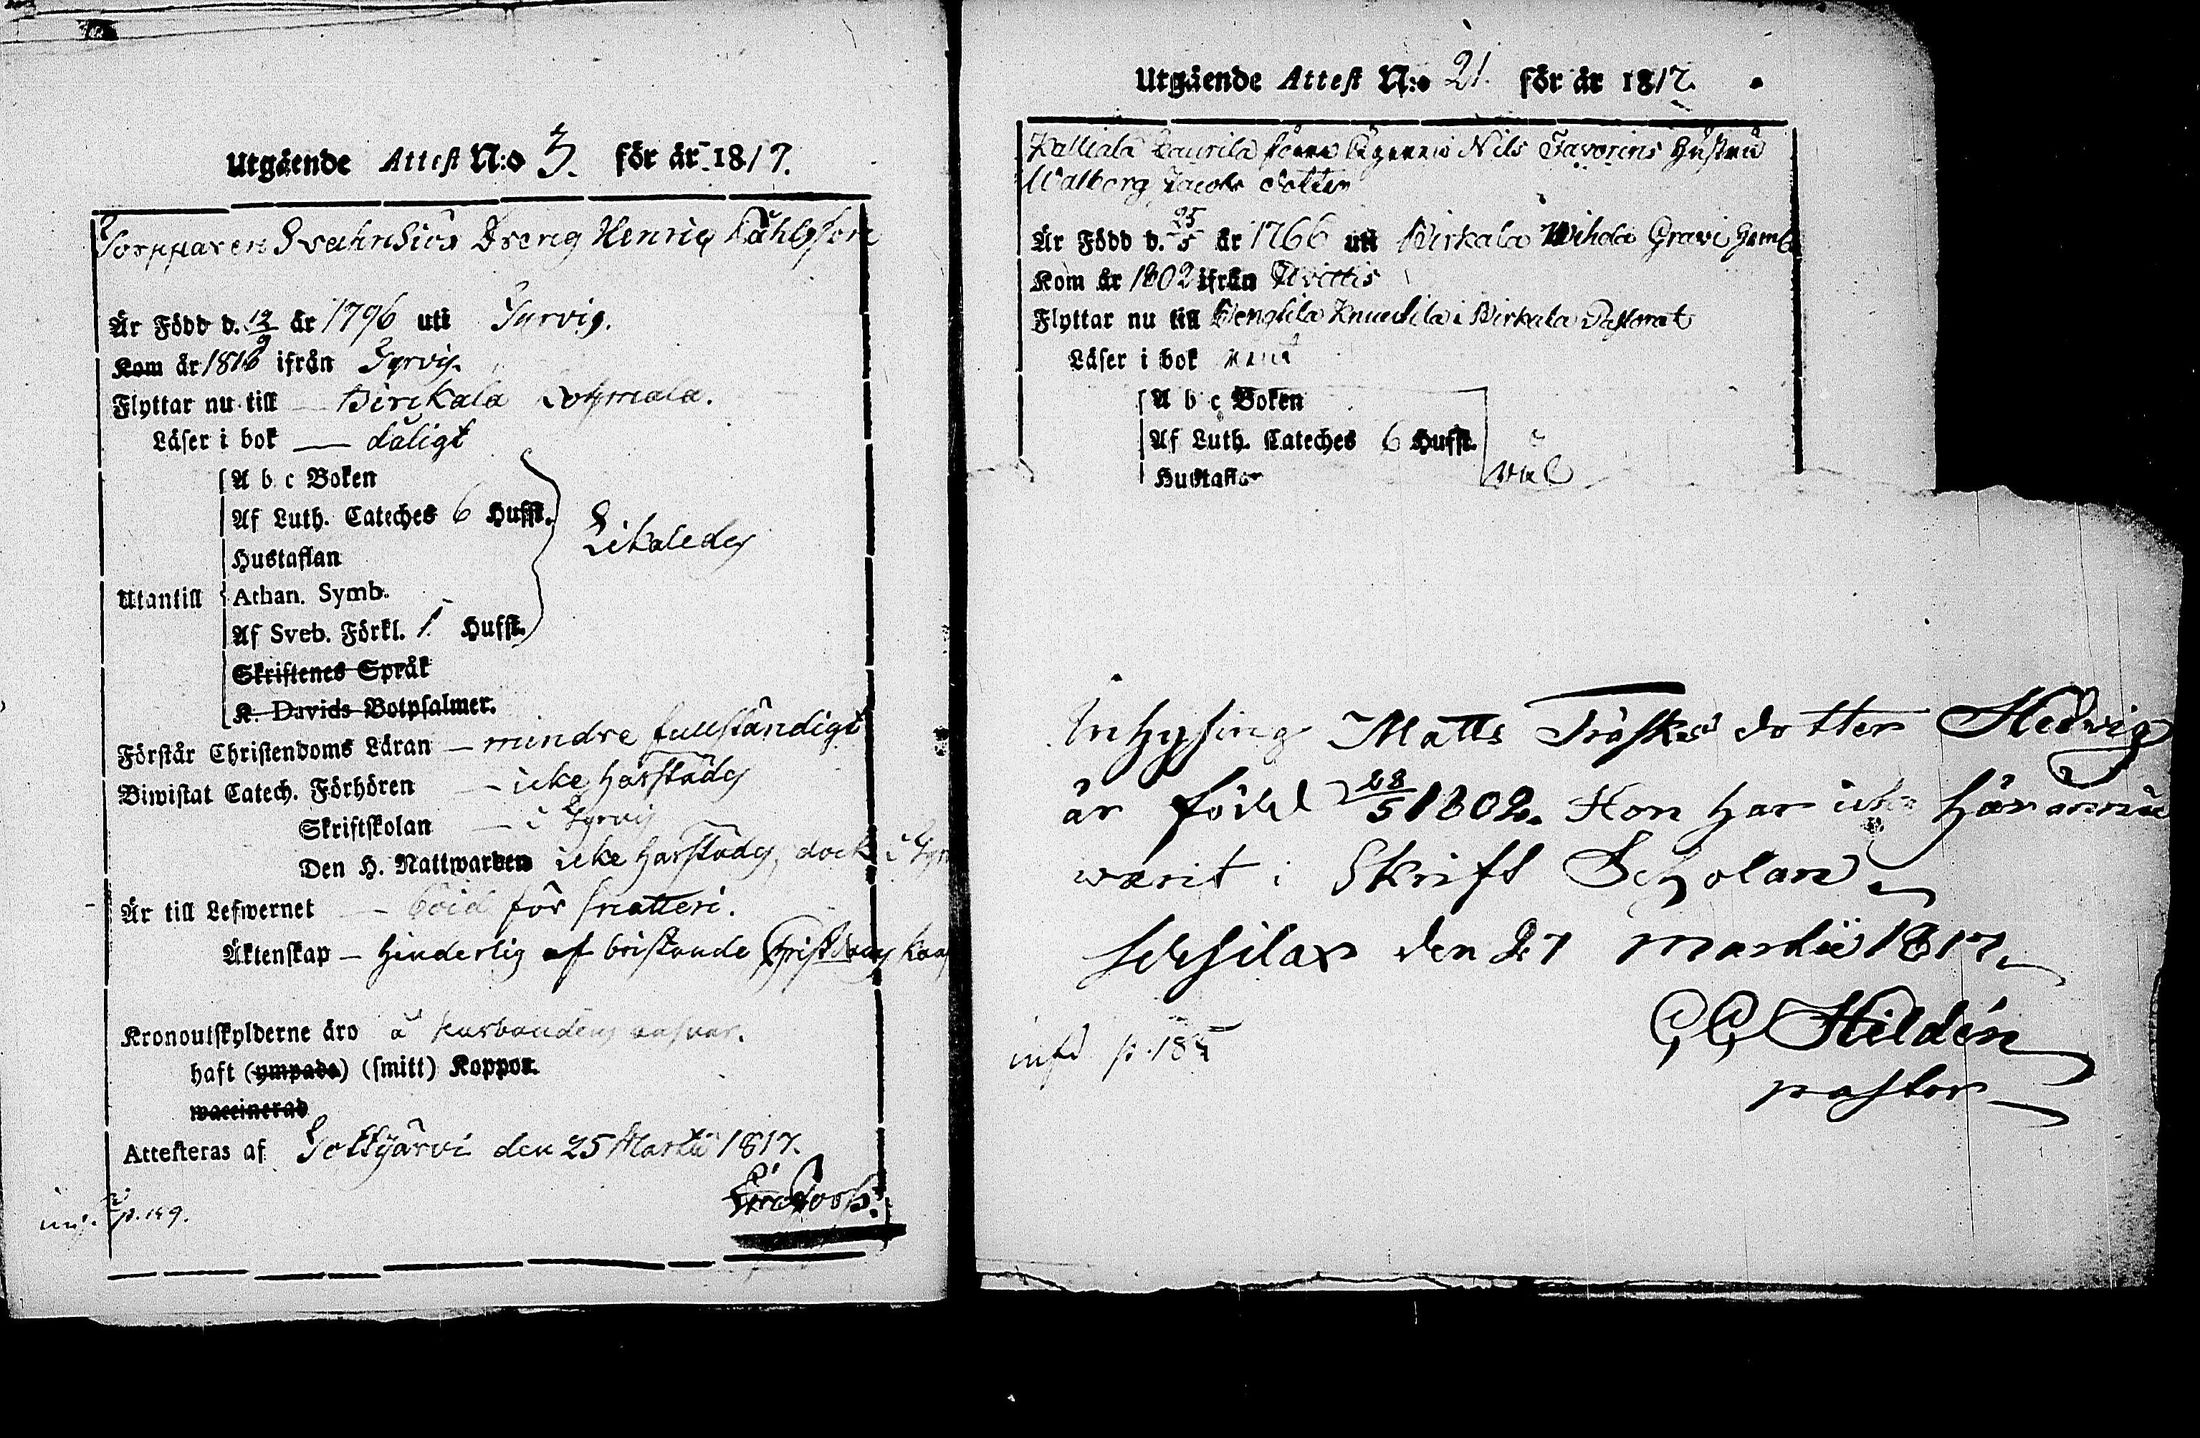 Utgående Attest N:o 3. för år 1817.
Torpparen Dreng Henric
Är Född d. 12/9 år 1796 uti Tyrvis.
Kom år 1816 ifrån Tyrvis.
Flyttar nu till — Birckala Lotzmala.
Läser i bok — dåligt
A b c Boken
Af Luth. Cateches 6 Hufst.
Hustaflan
Likaledes
Utantill Athan. Symb.
Af Sveb. Förkl. 1. Hufst.
Skriftenes Språk
K. Davids Botpsalmer.
Förstår Christendoms Läran — mindre fullständigt
Biwistat Catech. Förhören — icke härstädes
Skriftskolan — i Tyrvis
Den H. Nattwarden icke härstädes, dock i
Är till Lefwernet — för snatteri.
Äktenskap — hinderlig af bristande
Kronoutskylderne äro å husbondens ansvar.
haft (ympade) (smitt) Koppor.
waccinerad
Attesteras af Tottijärvi den 25 Martii 1817.
p. 149.
Utgående Attest N:o 21. för år 1817.
Kallialä Laurila förre Ägarens Nils Favorins Hustru
Walborg Jacobs dotter
Är Född d. 25/5 år 1766 uti Birkala
Kom år 1802 ifrån Hvittis
Flyttar nu till Knuutila i Birkala Pastorat
Läser i bok rent
A b c Boken
Af Luth. Cateches 6 Hufst.
Hustaflan
väl
Inhysing Matts Träsks dotter Hedwig
är född 28/5 1802. Hon har icke här ännu
warit i Skrift Scholan
den 27 Martii 1817.
Hildén
pastor
infd p. 185